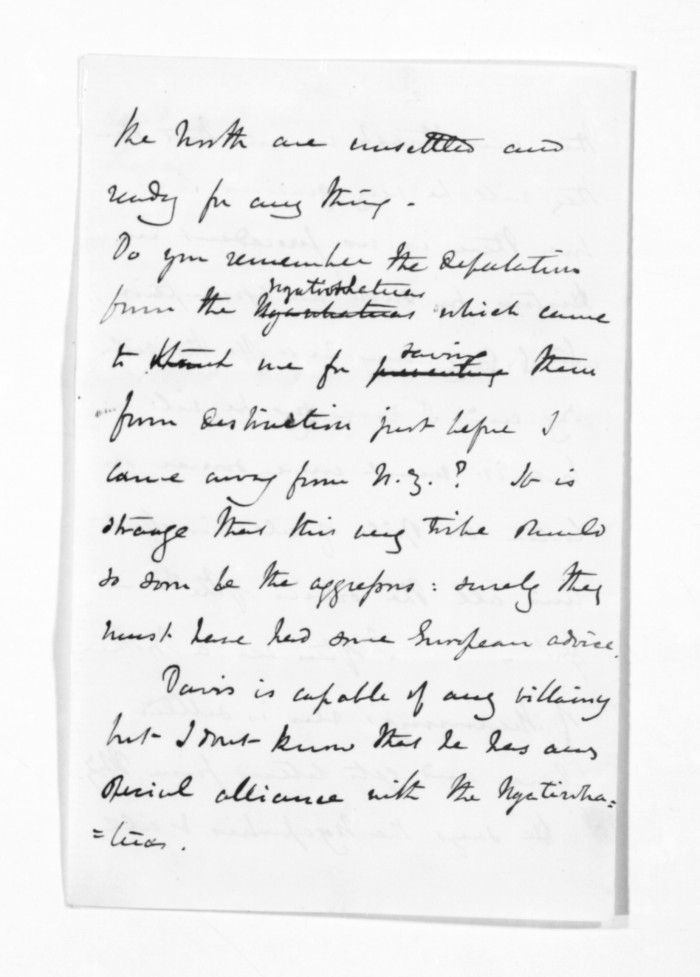 the North are unsettled and
ready for any thing.
Do you remember the deputation
Ngatiwhatuas
from the Nganhatuas which came
saving
to thank me for preventing them
from destruction just before I
came away from N.Z.? It is
strange that this very tribe should
so soon be the aggressors: surely they
must have had some European advice.
Davis is capable of any villainy
but I dont know that he has any
special alliance with the Ngatiwha=
=tuas.